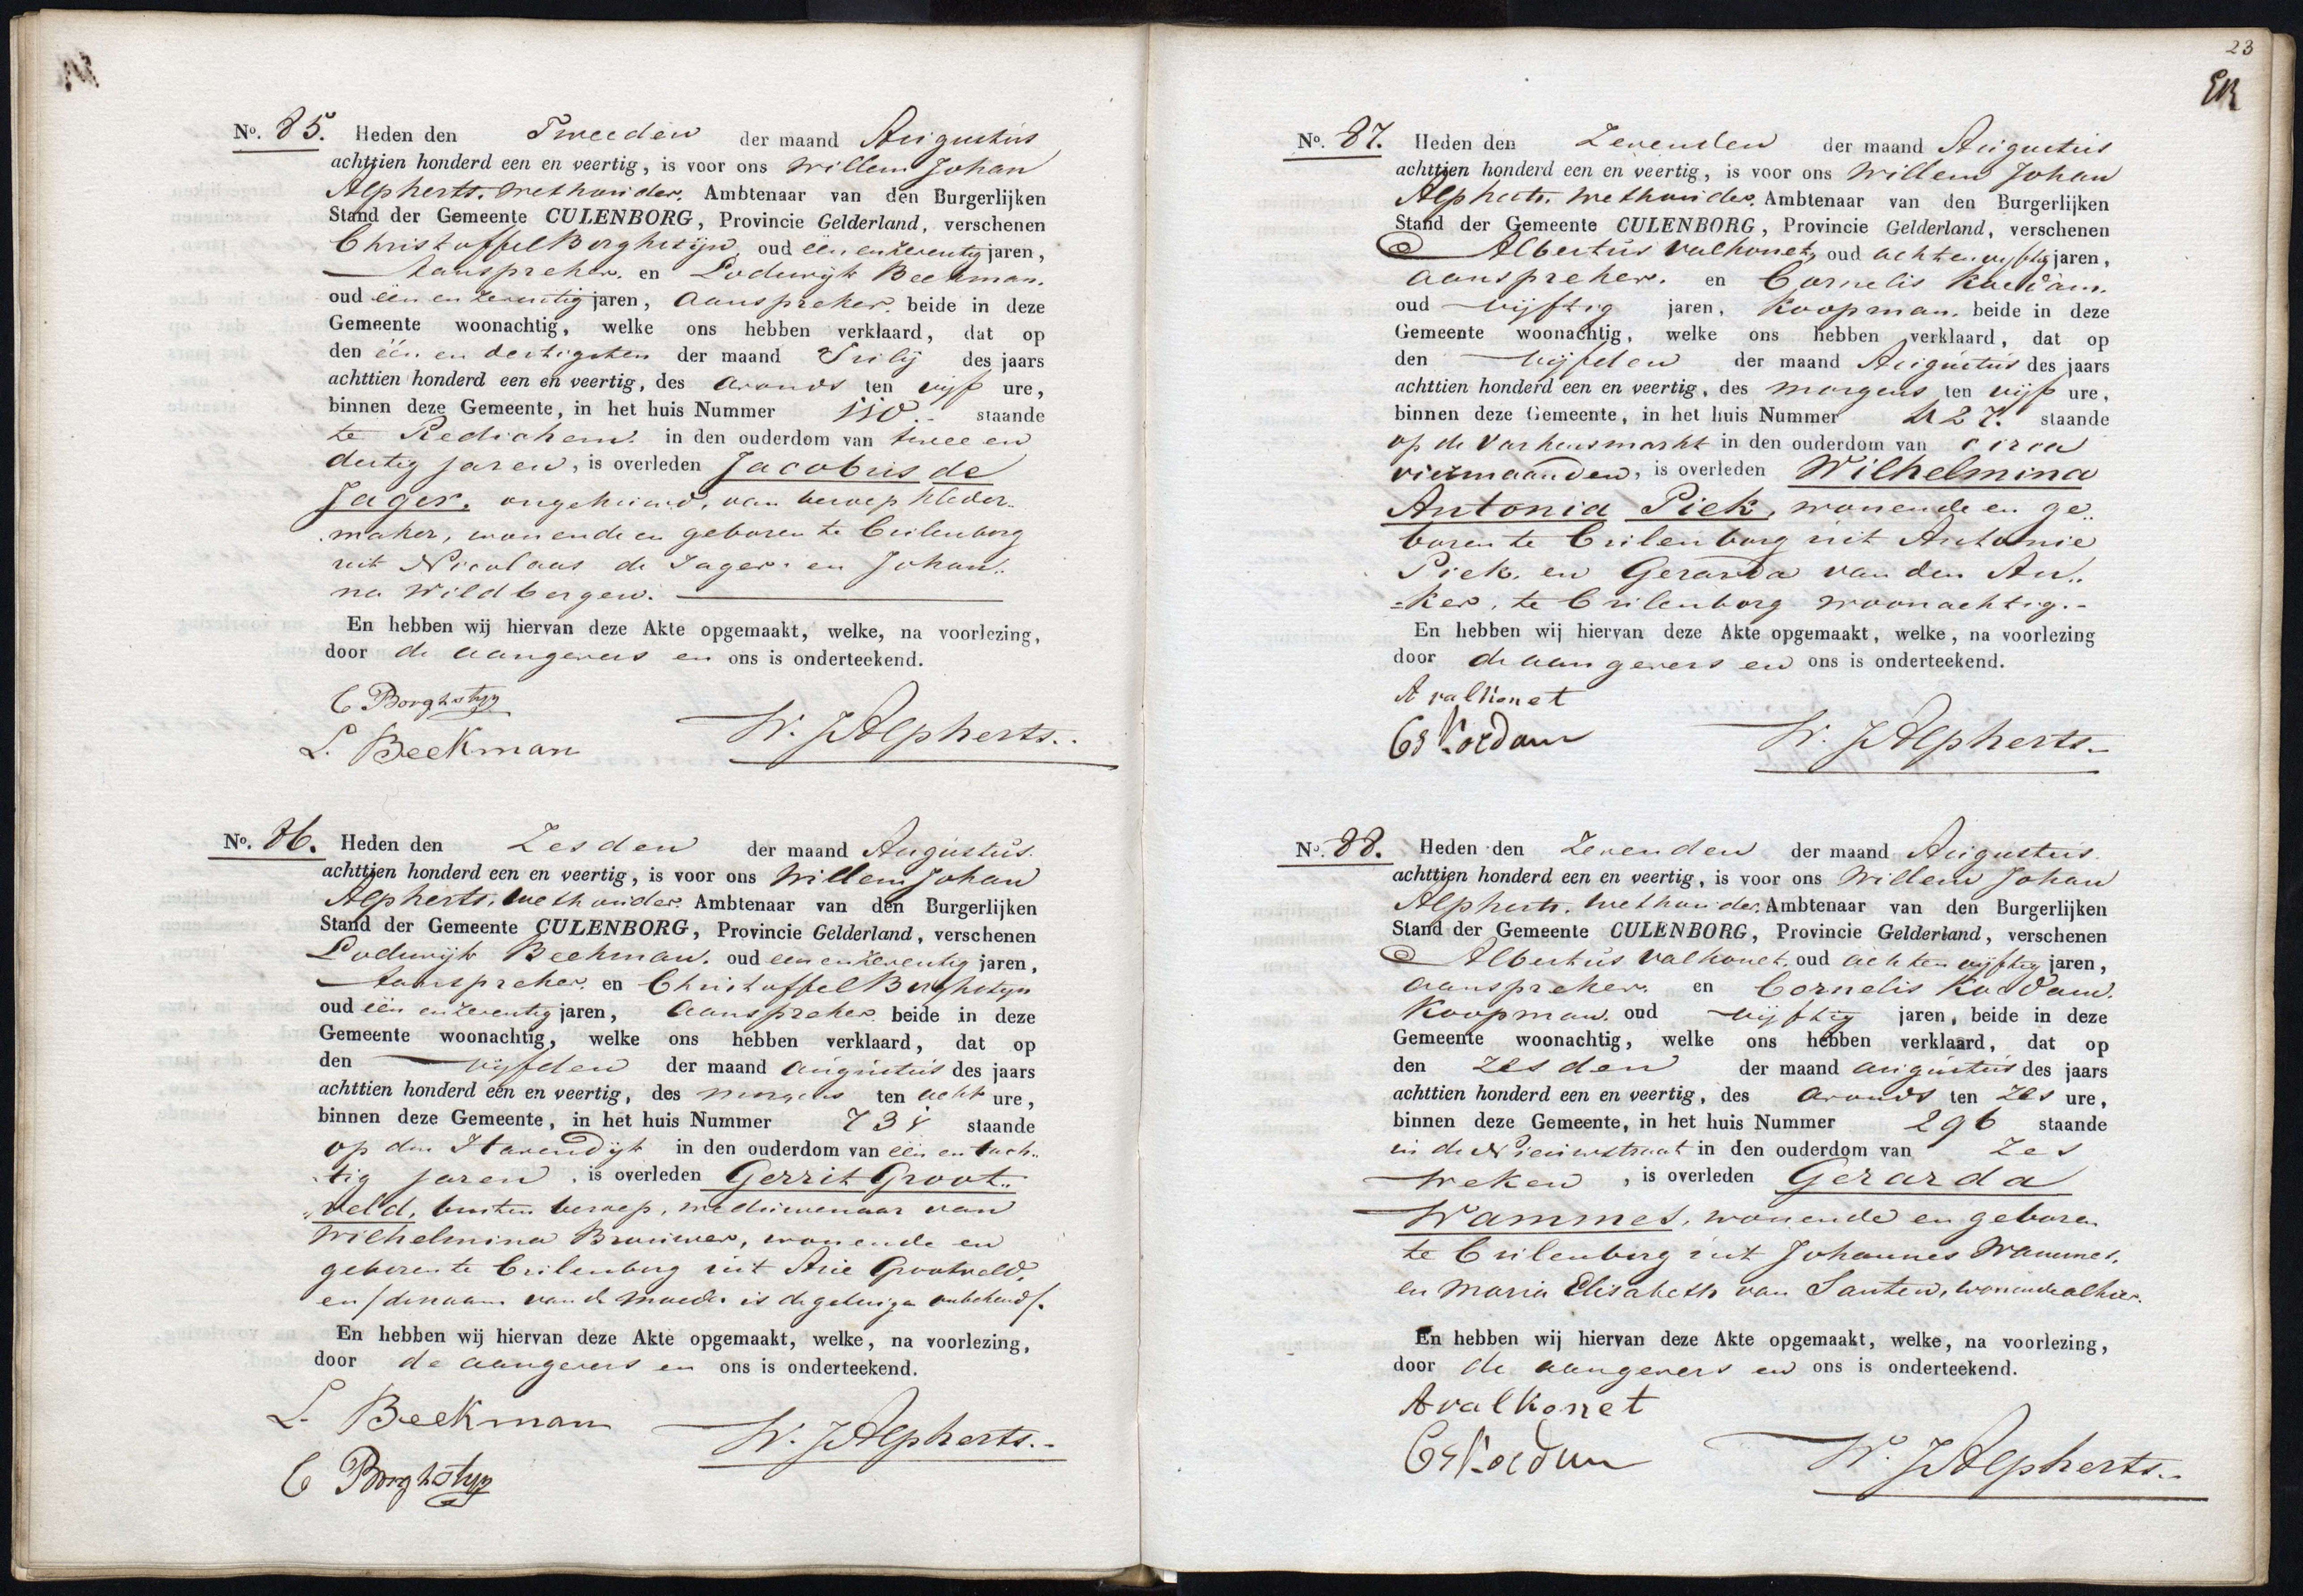 N.º 85. Heden den Tweeden der maand Augustus
achttien honderd een en veertig, is voor ons Willem Johan
Alpherts, Wethouder, Ambtenaar van den Burgerlijken
Stand der Gemeente CULENBORG, Provincie Gelderland, verschenen
Christoffel Borghstijn, oud één en zeventig jaren,
Aanspreker, en Lodewijk Beekman,
oud één en zeventig jaren, Aanspreker, beide in deze
Gemeente woonachtig, welke ons hebben verklaard, dat op
den één en dertigsten der maand Julij des jaars
achttien honderd een en veertig, des avonds ten vijf ure,
binnen deze Gemeente, in het huis Nummer 110.. staande
te Redichem, in den ouderdom van twee en
dertig jaren, is overleden Jacobus de
Jager, ongehuwd, van beroep kleder..
maker, wonende en geboren te Culenborg
uit Nicolaas de Jager en Johan..
na Wildbergen.
En hebben wij hiervan deze Akte opgemaakt, welke, na voorlezing,
door de aangevers en ons is onderteekend.
C Borghstyn
L. Beekman
W. J Alpherts..
N.º 86. Heden den Zesden der maand Augustus
achttien honderd een en veertig, is voor ons Willem Johan
Alpherts, Wethouder, Ambtenaar van den Burgerlijken
Stand der Gemeente CULENBORG, Provincie Gelderland, verschenen
Lodewijk Beekman, oud een en zeventig jaren,
Aanspreker, en Christoffel Borghstyn
oud één en zeventig jaren, Aanspreker, beide in deze
Gemeente woonachtig, welke ons hebben verklaard, dat op
den vijfden der maand Augustus des jaars
achttien honderd een en veertig, des morgens ten acht ure,
binnen deze Gemeente, in het huis Nummer staande
op den Havendijk in den ouderdom van één en tach..
tig jaren, is overleden Gerrit Groot..
veld, buiten beroep, weduwenaar van
Wilhelmina Brouwer, wonende en
geboren te Culenborg uit Arie Grootveld,
en /de naam van de moeder is de getuigen onbekend/.
En hebben wij hiervan deze Akte opgemaakt, welke, na voorlezing,
door de aangevers en ons is onderteekend.
L. Beekman
W. J Alpherts..
C Borghstyn
23
N.º 87. Heden den Zevenden der maand Augustus
achttien honderd een en veertig, is voor ons Willem Johan
Alpherts, Wethouder, Ambtenaar van den Burgerlijken
Stand der Gemeente CULENBORG, Provincie Gelderland, verschenen
Albertus Valkonet, oud acht en vijftig jaren,
aanspreker, en Cornelis Koedam,
oud vijftig jaren, Koopman, beide in deze
Gemeente woonachtig, welke ons hebben verklaard, dat op
den vijfden der maand Augustus des jaars
achttien honderd een en veertig, des morgens ten vijf ure,
binnen deze Gemeente, in het huis Nummer 427. staande
op de Varkensmarkt in den ouderdom van circa
vier maanden, is overleden Wilhelmina
Antonia Piek, wonende en ge..
boren te Culenborg uit Antonie
Piek, en Gerarda van den An..
=ker, te Culenborg woonachtig.-
En hebben wij hiervan deze Akte opgemaakt, welke, na voorlezing
door de aangevers en ons is onderteekend.
A valkonet
Cs Koedam
W. J Alpherts..
N.º 88. Heden den Zevenden der maand Augustus
achttien honderd een en veertig, is voor ons Willem Johan
Alpherts, Wethouder, Ambtenaar van den Burgerlijken
Stand der Gemeente CULENBORG, Provincie Gelderland, verschenen
Albertus Valkonet, oud acht en vijftig jaren,
aanspreker, en Cornelis Koedam,
Koopman, oud vijftig jaren, beide in deze
Gemeente woonachtig, welke ons hebben verklaard, dat op
den zesden der maand augustus des jaars
achttien honderd een en veertig, des avonds ten zes ure,
binnen deze Gemeente, in het huis Nummer 296 staande
in de Nieuwstraat in den ouderdom van zes
weken, is overleden Gerarda
Wammes, wonende en geboren
te Culenborg uit Johannes Wammes,
en Maria Elisabeth van Santen, wonende alhier.
En hebben wij hiervan deze Akte opgemaakt, welke, na voorlezing,
door de aangevers en ons is onderteekend.
A valkonet
Cs Koedam
W. J Alpherts..